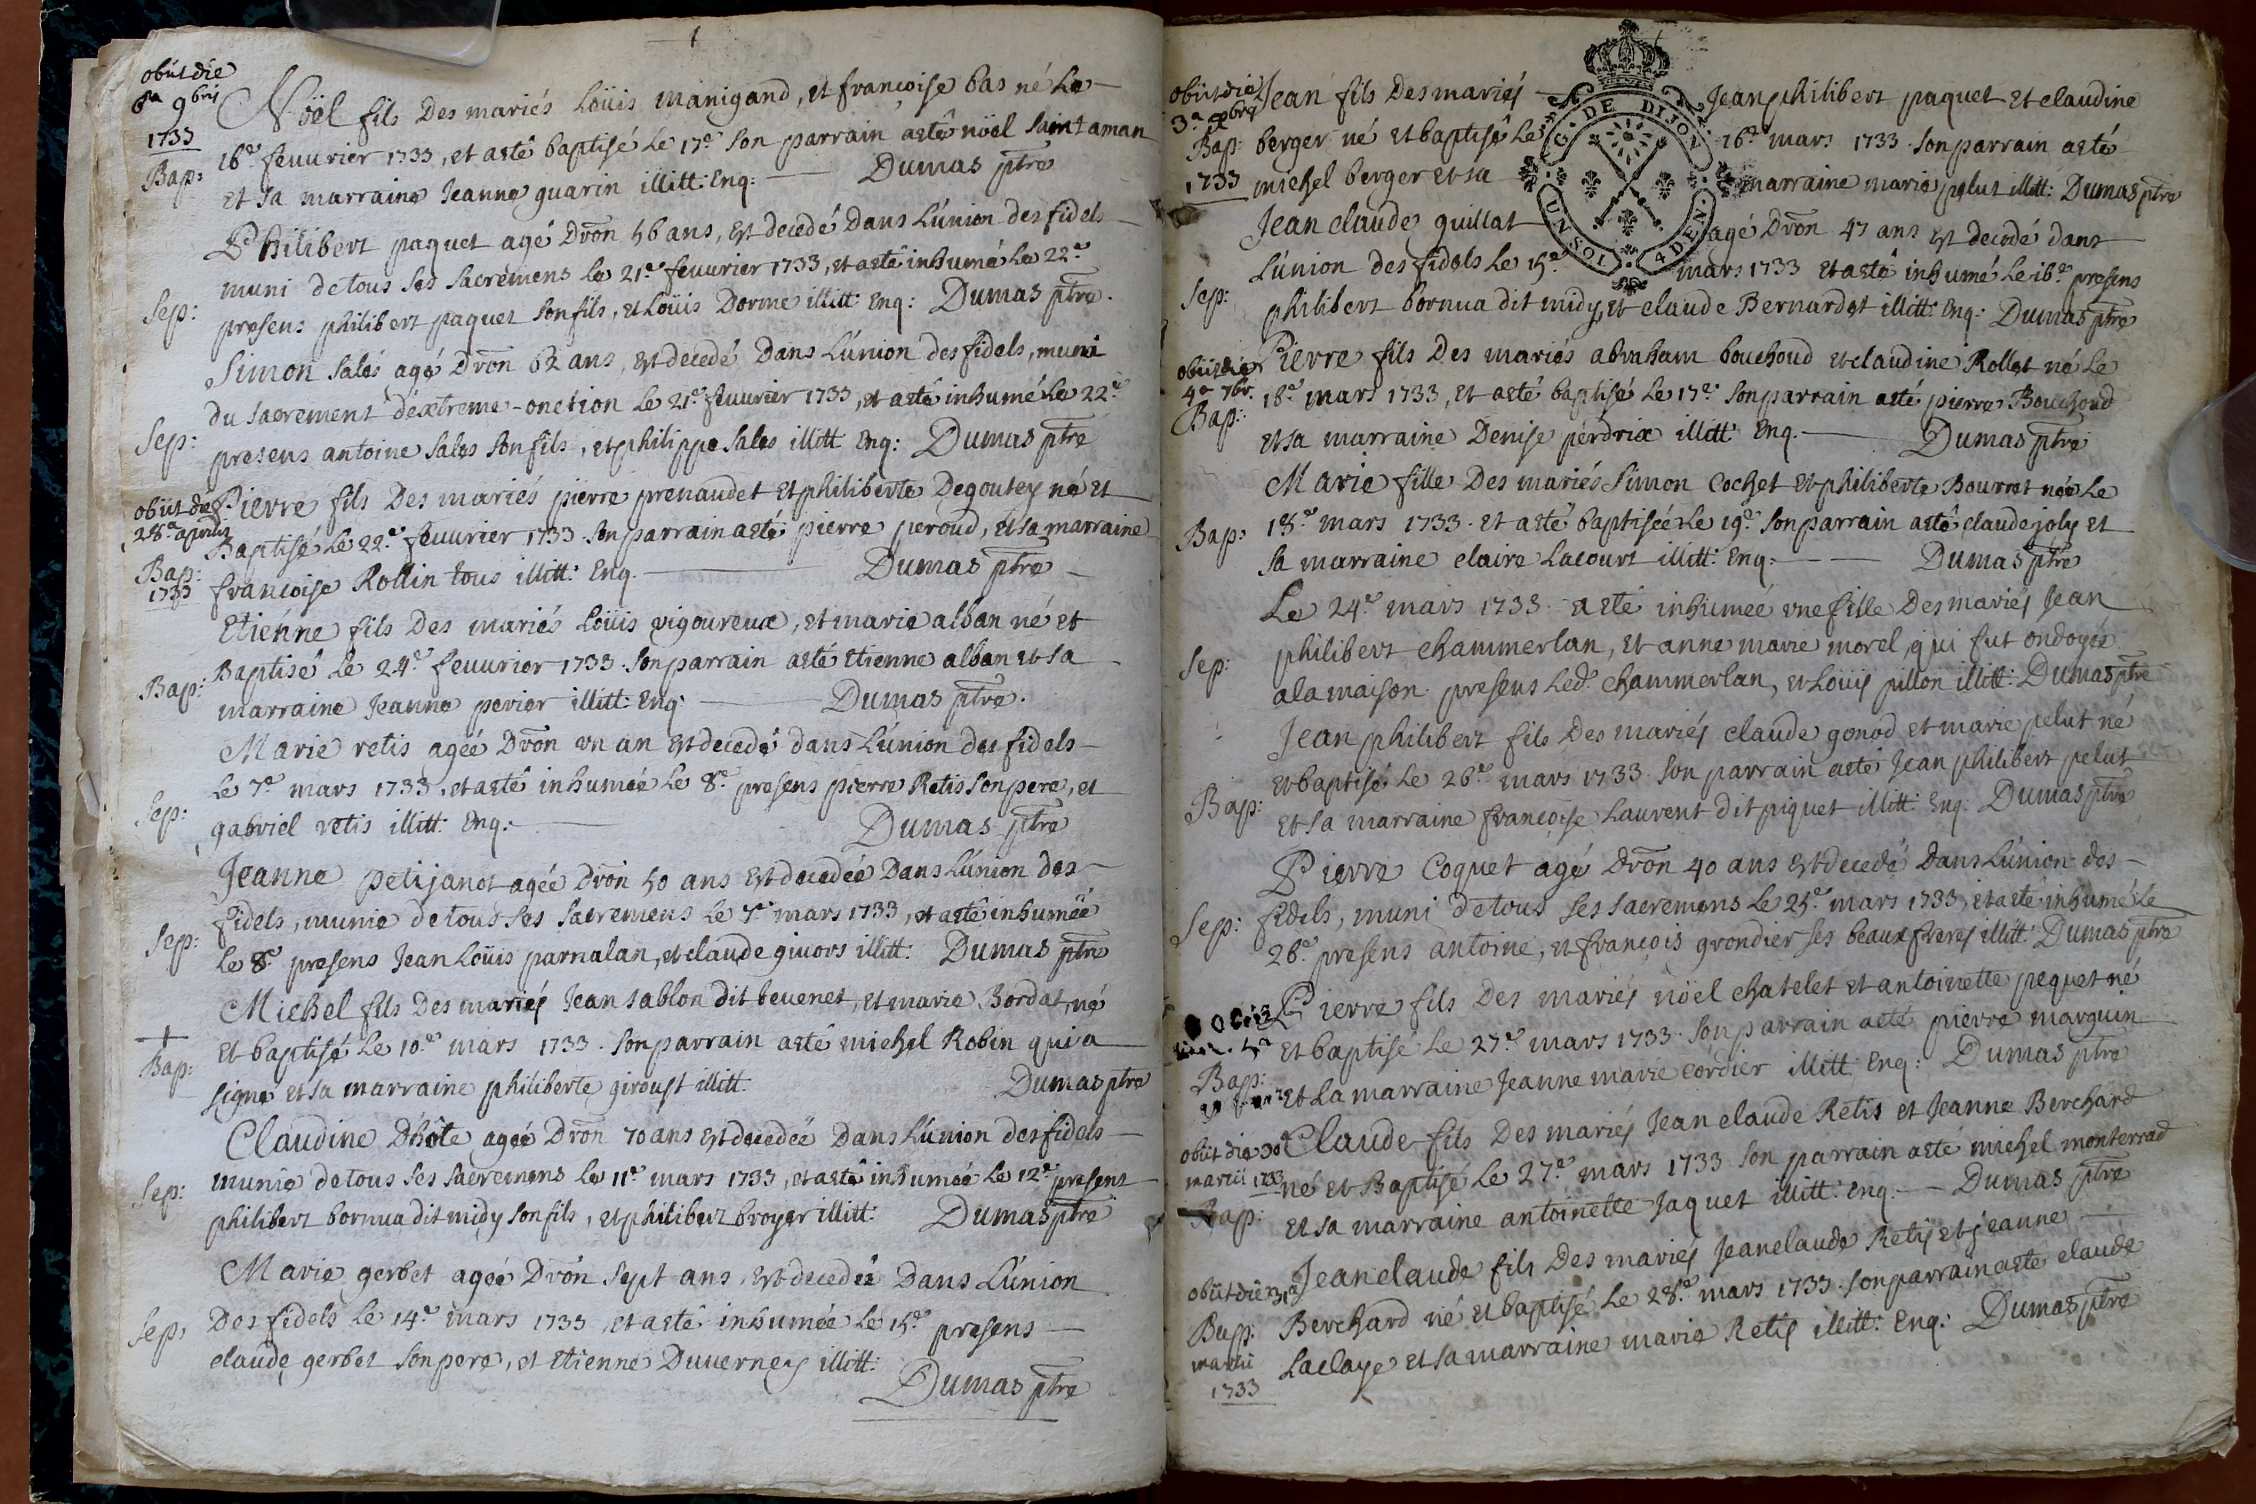 obiit die
6ta 9bris
1733
Bap:
Nöel fils Des mariés Loüis manigand, et francoise bas né Le
16e feuurier 1733, et astê baptisé Le 17e Son parrain astê nöel Saint aman
et sa marraine Jeanne guarin illitt: Enq: Dumas ptre
Sep:
Philibert paquet agé Dron 56 ans, Est decedé Dans L'union des fidels
muni de tous ses Sacremens Le 21e feuurier 1733, et astê inhumé Le 22e
presens philibert paquet son fils, et Loüis Dorme illitt: Enq: Dumas ptre.
Sep:
Simon Salés agé Dron 62 ans, Est decedé Dans L'union des fidels, muni
du Sacrement d'extreme-onction Le 21e feuurier 1733, et astê inhumé Le 22e
presens antoine Sales son fils, et philippe Sales illitt Enq: Dumas ptre
obiit die
28a aprilis
Bap:
1733
Pierre fils Des mariés pierre prenaudet et philiberte Degoutey né et
Baptisé Le 22e feuurier 1733. Son parrain astê pierre peroud, et sa marraine
francoise Rollin tous illitt: Enq. Dumas ptre
Bap:
Etiénne fils Des mariés Loüis vigoureux, et marie alban né et
Baptisé Le 24e feuurier 1733. Son parrain astê Etienne alban et sa
marraine Jeanne perier illitt: Enq: Dumas ptre.
Sep:
Marie retis agée Dron vn an Est decedé dans L'union des fidels
Le 7e mars 1733, et astê inhumée Le 8e presens pierre Retis son pere, et
gabriel retis illitt: Enq: Dumas ptre
Sep:
Jeanne petijanot agée Dron 50 ans Est decedée Dans L'union des
fidels, munie de tous ses Sacremens Le 7e mars 1733, et astê inhumée
Le 8e presens Jean Loüis parnalan, et claude giuors illitt: Dumas ptre
Bap:
Michel fils Des mariés Jean sablon dit beuenet, et marie Bordat, né
Et baptisé Le 10e mars 1733. Son parrain astê michel Robin qui a
signé et sa marraine philiberte giroust illitt: Dumas ptre
Sep:
Claudine Dhôte agée Dron 70 ans Est decedée Dans L'union des fidels
munie de tous ses Sacremens Le 11e mars 1733, et astê inhumée Le 12e presens
philibert bornua dit midy son fils, et philibert broyer illitt: Dumas ptre
Sep:
Marie gerbet agée Dron Sept ans, Est decedée Dans L'union
Des fidels Le 14e mars 1733, et astê inhumée Le 15e presens
claude gerbet son pere, et Etienne Duuerney illitt:
Dumas ptre
G. DE DIJON
UN SOL 4 DEN.
obiit die
3a
Bap:
1733
Jean fils Des mariés Jean philibert paquet et claudine
berger né et baptisé Le 16e mars 1733. Son parrain astê
michel berger et sa marraine marie pelut illitt: Dumas ptre
Sep:
Jean claude guillat agé Dron 47 ans Est decedé dans
L'union des fidels Le 15e mars 1733 et astê inhumé Le 16e presens
philibert bornua dit midy, et claude Bernardet illitt: Enq: Dumas ptre
obiit die
4a 7br.
Bap:
Pierre fils Des mariés abraham bouchoud et claudine Rollet né Le
18e mars 1733, et astê baptisé Le 17e Son parrain astê pierre Bouchoud
et sa marraine Denise perdrix illitt: Enq. Dumas ptre
Bap:
Marie fille Des mariés Simon Cochet et philiberte Bourret née Le
18e mars 1733. et astê baptisée Le 19e Son parrain astê claude joly et
sa marraine claire Lacourt illitt: Enq: Dumas ptre
Sep:
Le 24e mars 1733 astê inhumeé vne fille Des mariés Jean
philibert chammerlan, et anne marie morel, qui fut ondoyée
a la maison presens Led. chammerlan, et Loüis pillon illitt: Dumas ptre
Bap:
Jean philibert fils Des mariés claude gonod et marie pelut né
et baptisé Le 26e mars 1733. Son parrain astê Jean philibert pelut
Et sa marraine francoise Laurent dit piquet illitt: Enq: Dumas ptre
Sep:
Pierre Coquet agé Dron 40 ans Est decedé Dans L'union des
fidels, muni de tous ses Sacremens Le 25e mars 1733, et astê inhumé Le
26e presens antoine, et francois grondier ses beaux freres illitt: Dumas ptre
Bap:
Pierre fils Des mariés nöel chatelet et antoinette pequet né
Et baptisé Le 27e mars 1733. Son parrain astê pierre marguin
Et La marraine Jeanne marie cordier illitt: Enq: Dumas ptre
obiit die 30a
martii 1733
Bap:
Claude fils Des mariés Jean claude Retis et Jeanne Berchard
né et Baptisé Le 27e mars 1733 Son parrain astê michel monterrad
et sa marraine antoinette Jaquet illitt: Enq: Dumas ptre
obiit die 31a
Bap:
martii
1733
Jean claude fils Des mariés Jean claude Retis et jeanne
Berchard né et baptisé Le 28e mars 1733. Son parrain astê claude
Laclaye et sa marraine marie Retis illitt: Enq: Dumas ptre